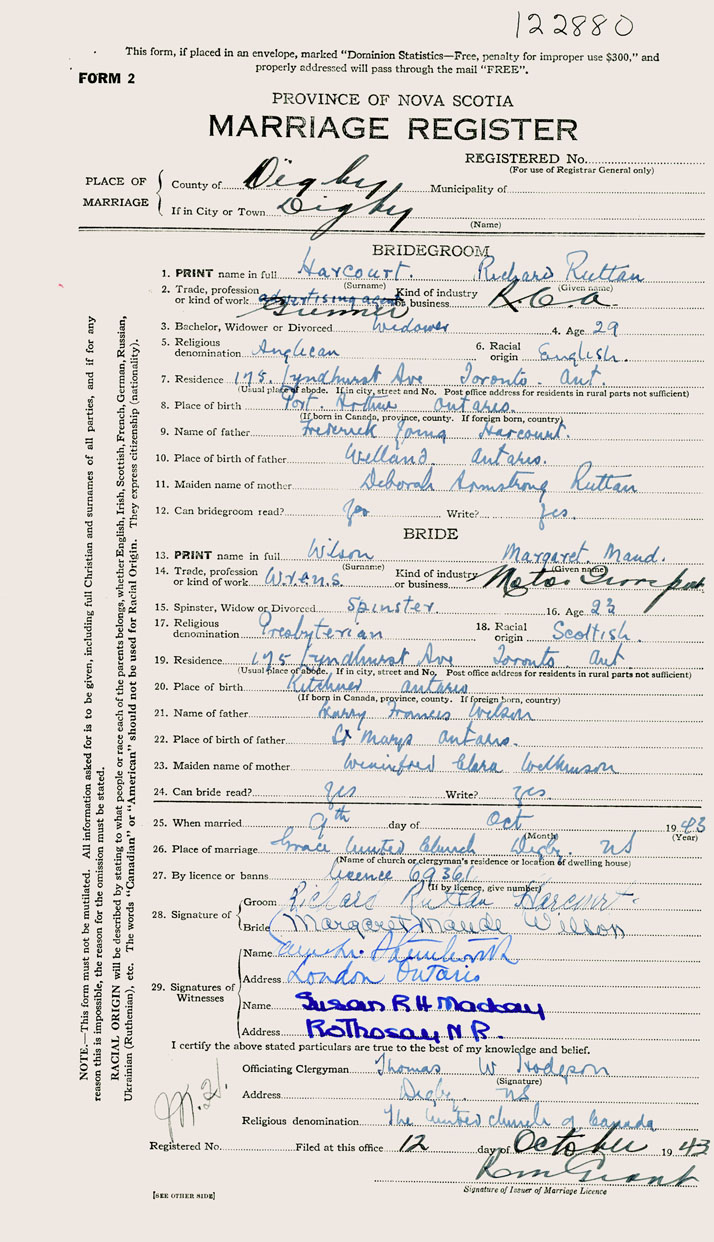 122880
This form, if placed in an envelope, marked "Dominion Statistics—Free, penalty for improper use $300," and
properly addressed will pass through the mail "FREE".
FORM 2
PROVINCE OF NOVA SCOTIA
MARRIAGE REGISTER
REGISTERED No.
(For use of Registrar General only)
PLACE OF MARRIAGE
County of Digby Municipality of
If in City or Town Digby
(Name)
BRIDEGROOM
1. PRINT name in full Harcourt. Richard Ruttan
(Surname) (Given name)
2. Trade, profession or kind of work advertising agent Gunner Kind of industry or business R.C.A.
3. Bachelor, Widower or Divorced Widower 4. Age 29
5. Religious denomination Anglican 6. Racial origin English.
7. Residence 175. Lyndhurst Ave Toronto. Ont.
(Usual place of abode. If in city, street and No. Post office address for residents in rural parts not sufficient)
8. Place of birth Port. Arthur Ontario.
(If born in Canada, province, county. If foreign born, country)
9. Name of father Frederick Young Harcourt.
10. Place of birth of father Welland Ontario.
11. Maiden name of mother Deborah Armstrong Ruttan
12. Can bridegroom read? Yes Write? Yes.
BRIDE
13. PRINT name in full Wilson Margaret Maud.
(Surname) (Given name)
14. Trade, profession or kind of work W.r.e.n.s Kind of industry or business Motor Transport
15. Spinster, Widow or Divorced Spinster 16. Age 23
17. Religious denomination Presbyterian 18. Racial origin Scottish.
19. Residence 175 Lyndhurst Ave Toronto. Ont
(Usual place of abode. If in city, street and No. Post office address for residents in rural parts not sufficient)
20. Place of birth Kitchner Ontario
(If born in Canada, province, county. If foreign born, country)
21. Name of father Harry Francis Wilson
22. Place of birth of father St Marys Ontario.
23. Maiden name of mother Winnifred Clara Wilkinson
24. Can bride read? Yes Write? Yes.
25. When married 9th day of Oct 1943
(Month) (Year)
26. Place of marriage Grace United Church Digby. NS
(Name of church or clergyman's residence or location of dwelling house)
27. By licence or banns licence 69361
(If by licence, give number)
28. Signature of
Groom Richard Ruttan Harcourt.
Bride Margaret Maude Wilson
29. Signatures of Witnesses
Name
Address London Ontario
Name Susan R H Mackay
Address Rothesay N.B.
I certify the above stated particulars are true to the best of my knowledge and belief.
Officiating Clergyman Thomas W Hodgson
(Signature)
Address Digby. NS
Religious denomination The United Church of Canada
Registered No. Filed at this office 12 day of October 1943
Grant
Signature of Issuer of Marriage Licence
[SEE OTHER SIDE]
NOTE.—This form must not be mutilated. All information asked for is to be given, including full Christian and surnames of all parties, and if for any
reason this is impossible, the reason for the omission must be stated.
RACIAL ORIGIN will be described by stating to what people or race each of the parents belongs, whether English, Irish, Scottish, French, German, Russian,
Ukrainian (Ruthenian), etc. The words "Canadian" or "American" should not be used for Racial Origin. They express citizenship (nationality).